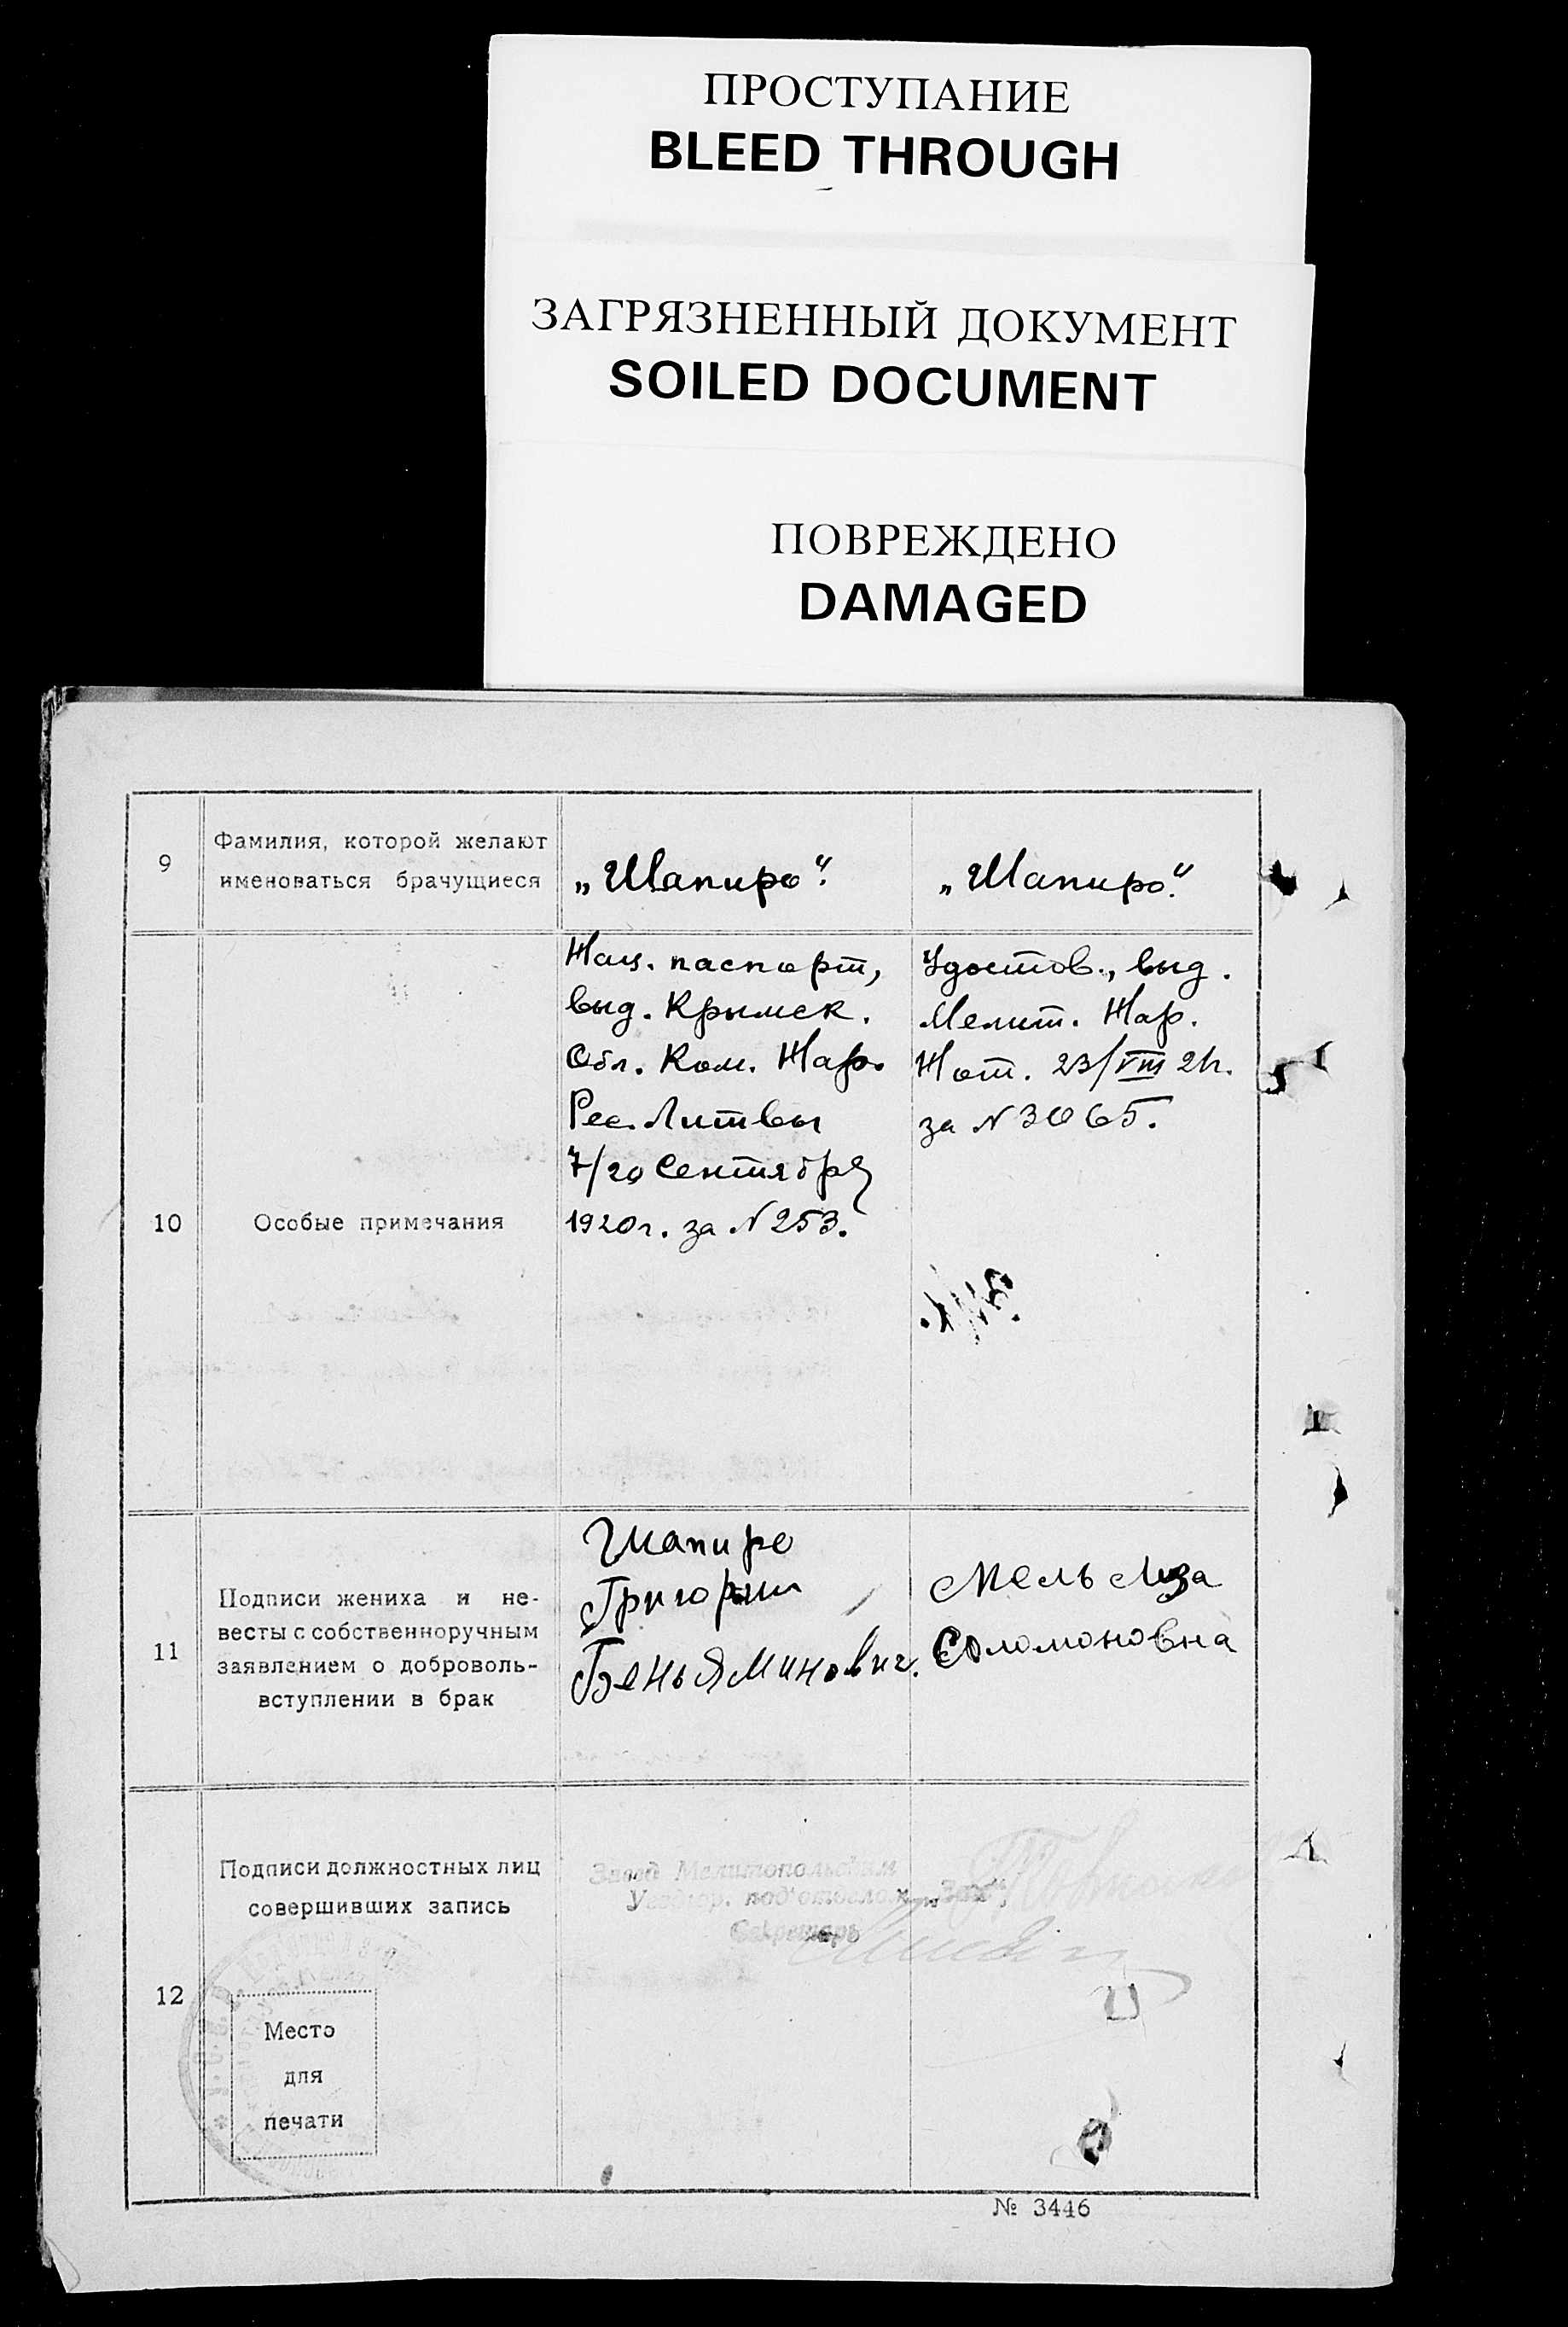 ПРОСТУПАНИЕ
BLEED THROUGH
ЗАГРЯЗНЕННЫЙ ДОКУМЕНТ
SOILED DOCUMENT
ПОВРЕЖДЕНО
DAMAGED
9
Фамилия, которой желают
именоваться брачущиеся
„Шапиро“.
„Шапиро“.
10
Особые примечания
Нац. паспорт,
выд. Крымск.
Обл. Ком. Нар.
Рес. Литвы
7/20 Сентября
1920г. за N 253.
Удостов., выд.
Мелит. Нар.
Нот. 23/VIII 21г.
за N 3065.
11
Подписи жениха и не-
весты с собственноручным
заявлением о доброволь-
вступлении в брак
Шапиро
Григорий
Беньяминович.
Мель Лиза
Соломоновна
12
Подписи должностных лиц
совершивших запись
Завед Мелитопольским
под'отделом
Секретарь
Место
для
печати
№ 3446